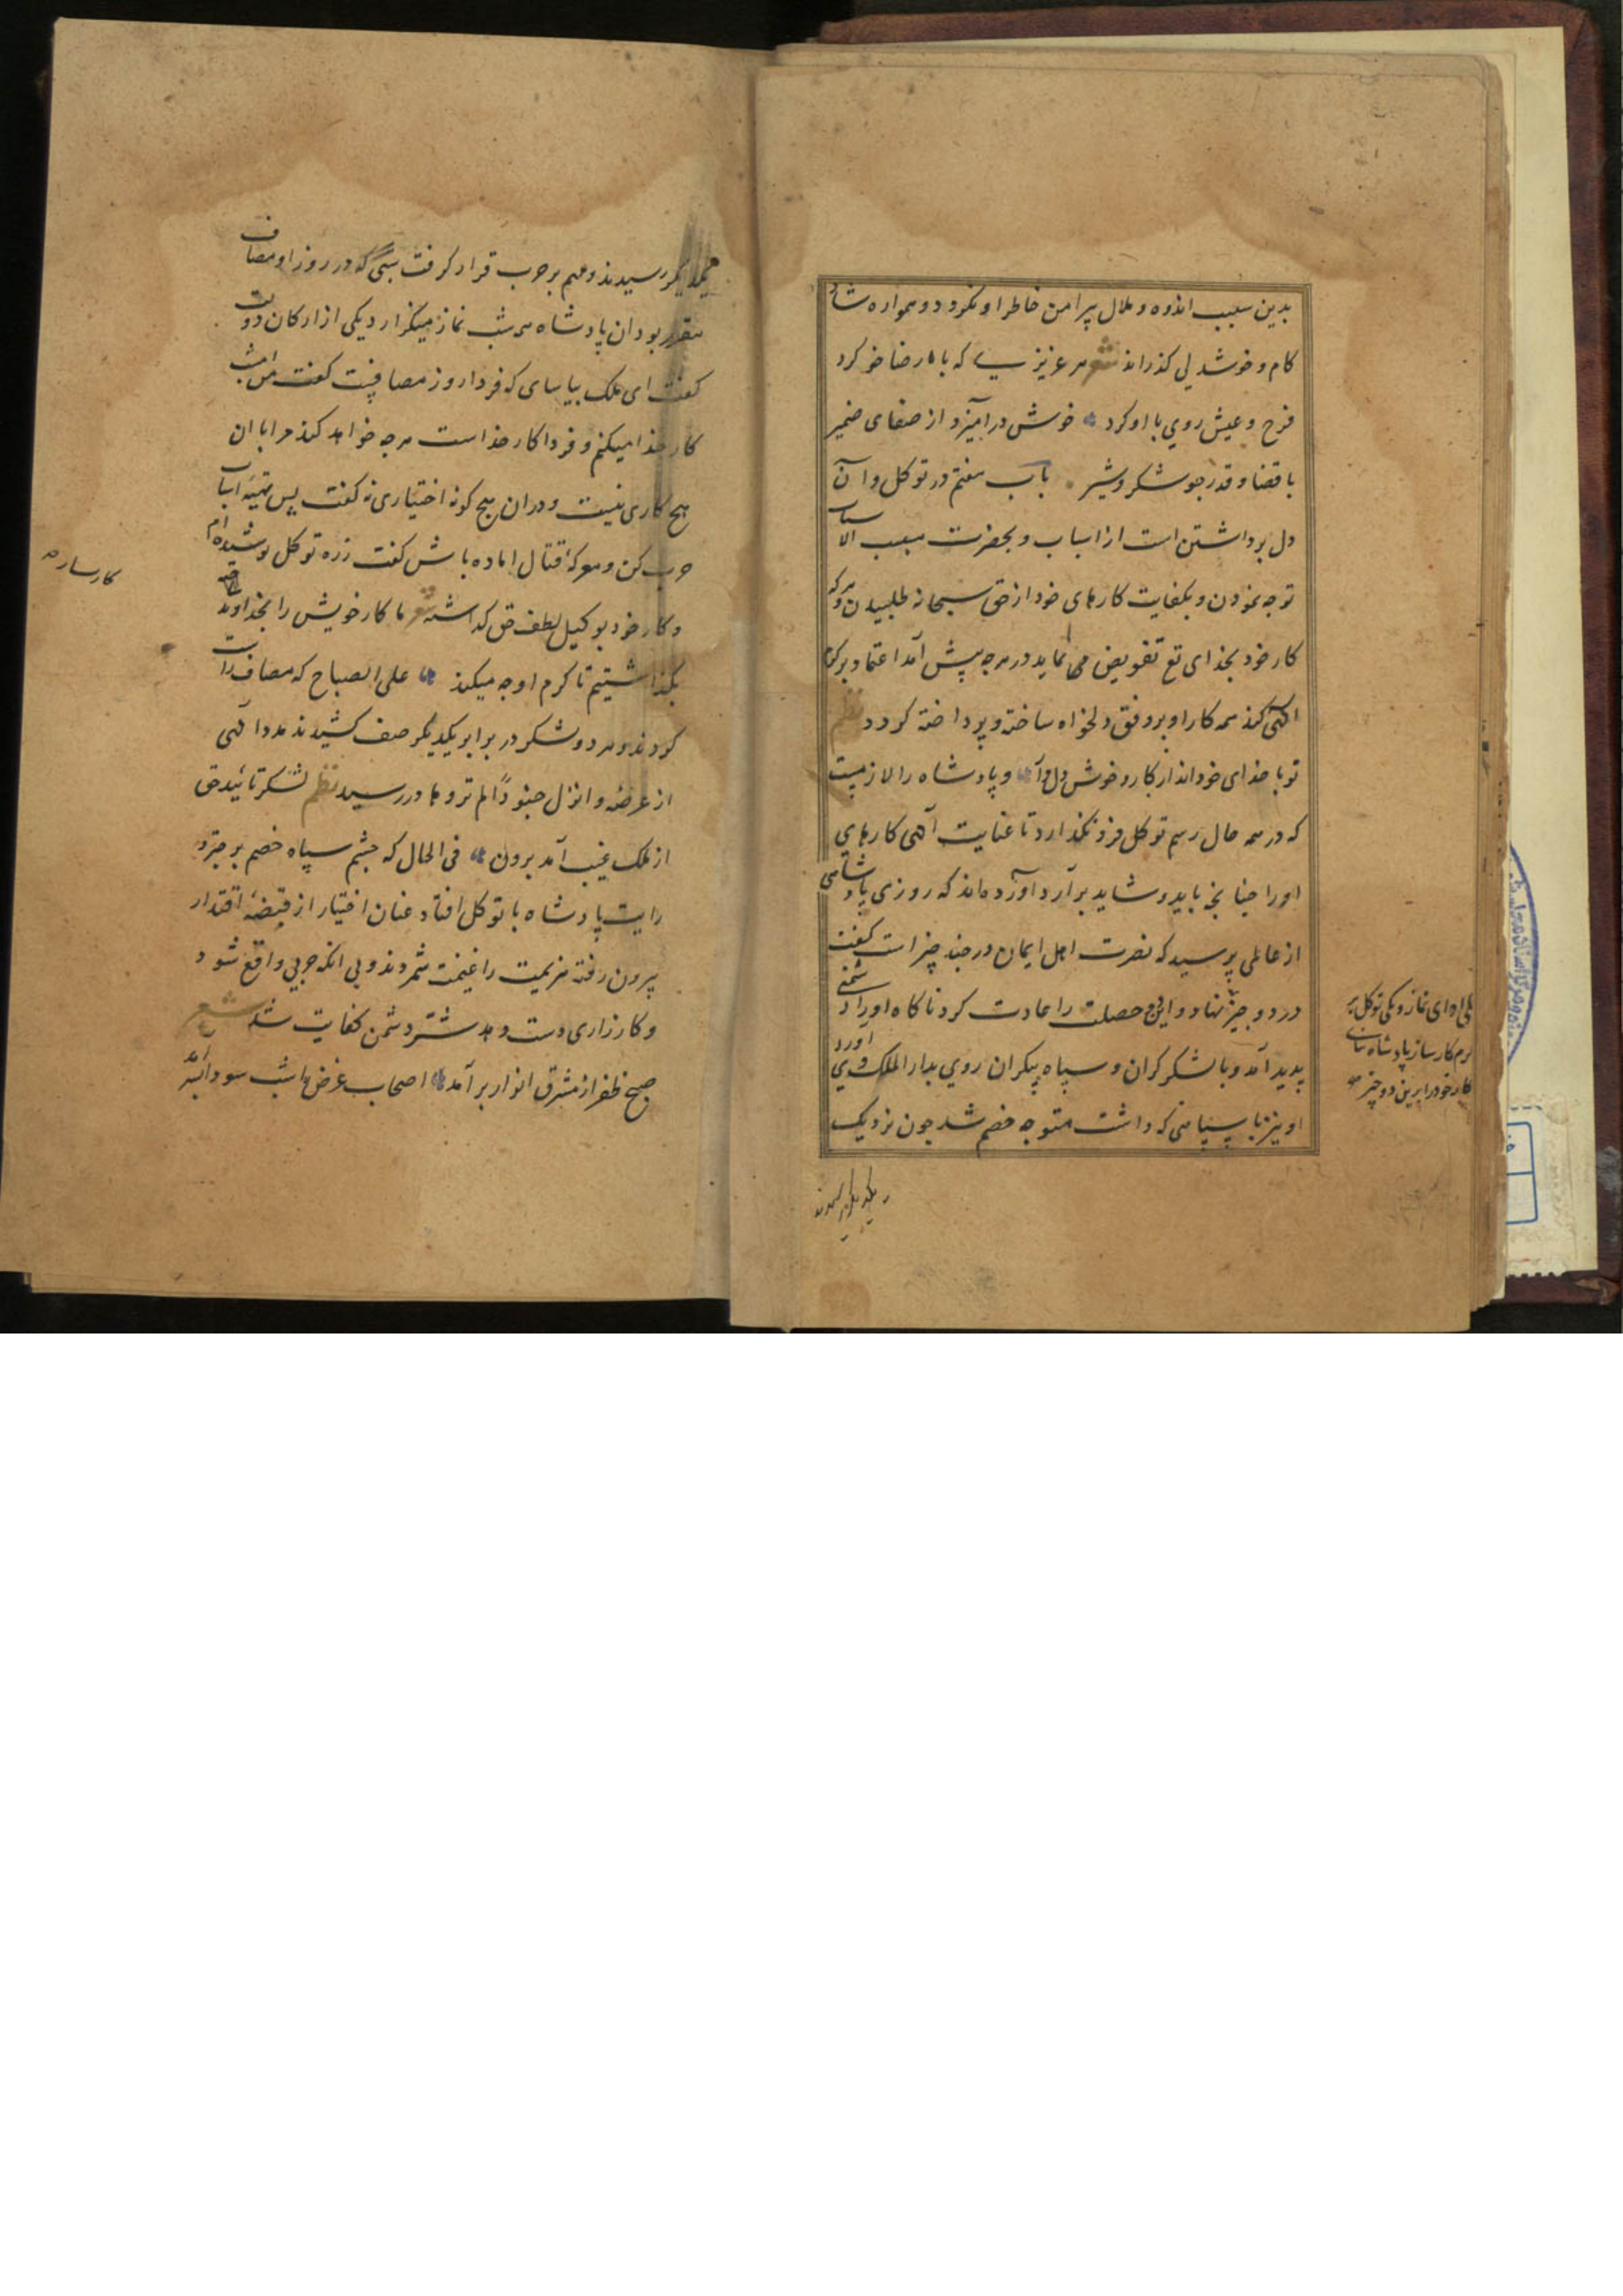 بدین سبب اندوه و ملال پیرامن خاطر او نکردد و همواره شاد
کام و خوشدلی کذراند شعر هر عزیزی که با رضا خو کرد
فرح و عیش روی با او کرد خوش درامیزد از صفای ضمیر
با قضا و قدر جو شکر و شیر باب هفتم در توکل و آن
دل برداشتن است از اسباب و بحضرت مسبب الاسباب
توجه نمودن و کفایت کارهای خود از حق سبحانه طلبیدن و هرکه
کار خود بخدای تع تفویض می نماید در هرجه پیش آمد اعتماد بر کرم
الهی کند همه کار او بر وفق دلخواه ساخته و پرداخته کردد نظم
تو با خدای خود انداز کار و خوش دل و پادشاه را لازمست
که در همه حال رسم توکل فرو نکذارد تا عنایت آلهی کارهای
اورا جنانجه باید و شاید برآرد آورده‌اند که روزی پادشاهی
از عالمی پرسید که نصرت اهل ایمان در جند چیز است کفت
در دو جیز نهاد و این دو خصلت را عادت کرد ناکاه اورا دشمنی
پدید آمد و با لشکر کران و سپاه بیکران روی بدار الملک وی آورد
او نیز با سپاهی که داشت متوجه خصم شد جون نزدیک
یکی نماز و یکی توکل
کارساز پادشاه
کار خود را برین دو چیز
بیکدیکر رسیدند
بیکدیکر رسیدند و مهم بر حرب قرار کرفت شبی که در روز او مصاف
مقرر بود ان پادشاه همه شب نماز میکزارد یکی از ارکان دولت
کفت ای ملک بیاسای که فردا روز مصافست کفت من امشب
کار خدا میکنم و فردا کار خداست هرجه خواهد کند مرا با ان
هیج کاری نیست و دران هیج کونه اختیاری نه کفت پس تهیه اسباب
حرب کن و معرکه قتال اماده باش کفت زره توکل پوشیده‌ام
و کار خود بوکیل لطف حق کذاشته شعر ما کار خویش را بخداوند
بکذاشتیم تا کرم او جه میکند علی الصباح که مصاف راست
کردند و هر دو لشکر در برابر یکدیکر صف کشیدند مدد الهی
از عرصه و انزل جنودًا لم تروها در رسید نظم لشکر تائید حق
از ملک غیب آمد برون فی الحال که جشم سپاه خصم بر جتر و
رایت پادشاه با توکل افتاد عنان اختیار از قبضه اقتدار
بیرون رفته هزیمت را غنیمت شمردند و بی انکه حربی واقع شود
و کارزاری دست دهد شر دشمن کفایت شد شعر
صبح ظفر از مشرق انوار برآمد اصحاب غرض را شب سودا بسر آمد
کارساز